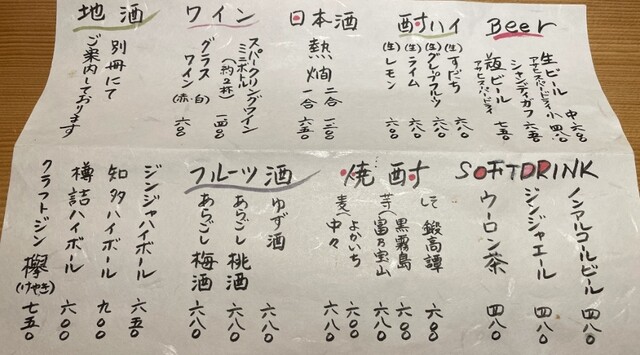 Beer
生ビール 中 六八〇
アサヒスーパードライ 小 四八〇
シャンディガフ 六五〇
瓶ビール
アサヒスーパードライ 七五〇
酎ハイ
(生)すだち 六八〇
(生)グレープフルーツ 六八〇
(生)ライム 六八〇
(生)レモン 六八〇
日本酒
熱燗 二合 一二三〇
一合 六五〇
ワイン
スパークリングワイン
ミニボトル
(約2杯) 一四八〇
グラス
ワイン(赤・白) 六八〇
地酒
別冊にて
ご案内しております
SOFTDRINK
ノンアルコールビール 四八〇
ジンジャエール 四八〇
ウーロン茶 四八〇
焼酎
しそ 鍛高譚 六八〇
芋 黒霧島 六八〇
富乃宝山 六八〇
麦 よかいち 六〇〇
中々 六八〇
フルーツ酒
ゆず酒 六八〇
あらごし桃酒 六八〇
あらごし梅酒 六八〇
ジンジャハイボール 六五〇
知多ハイボール 九〇〇
樽詰ハイボール 六〇〇
クラフトジン 欅(けやき) 七五〇